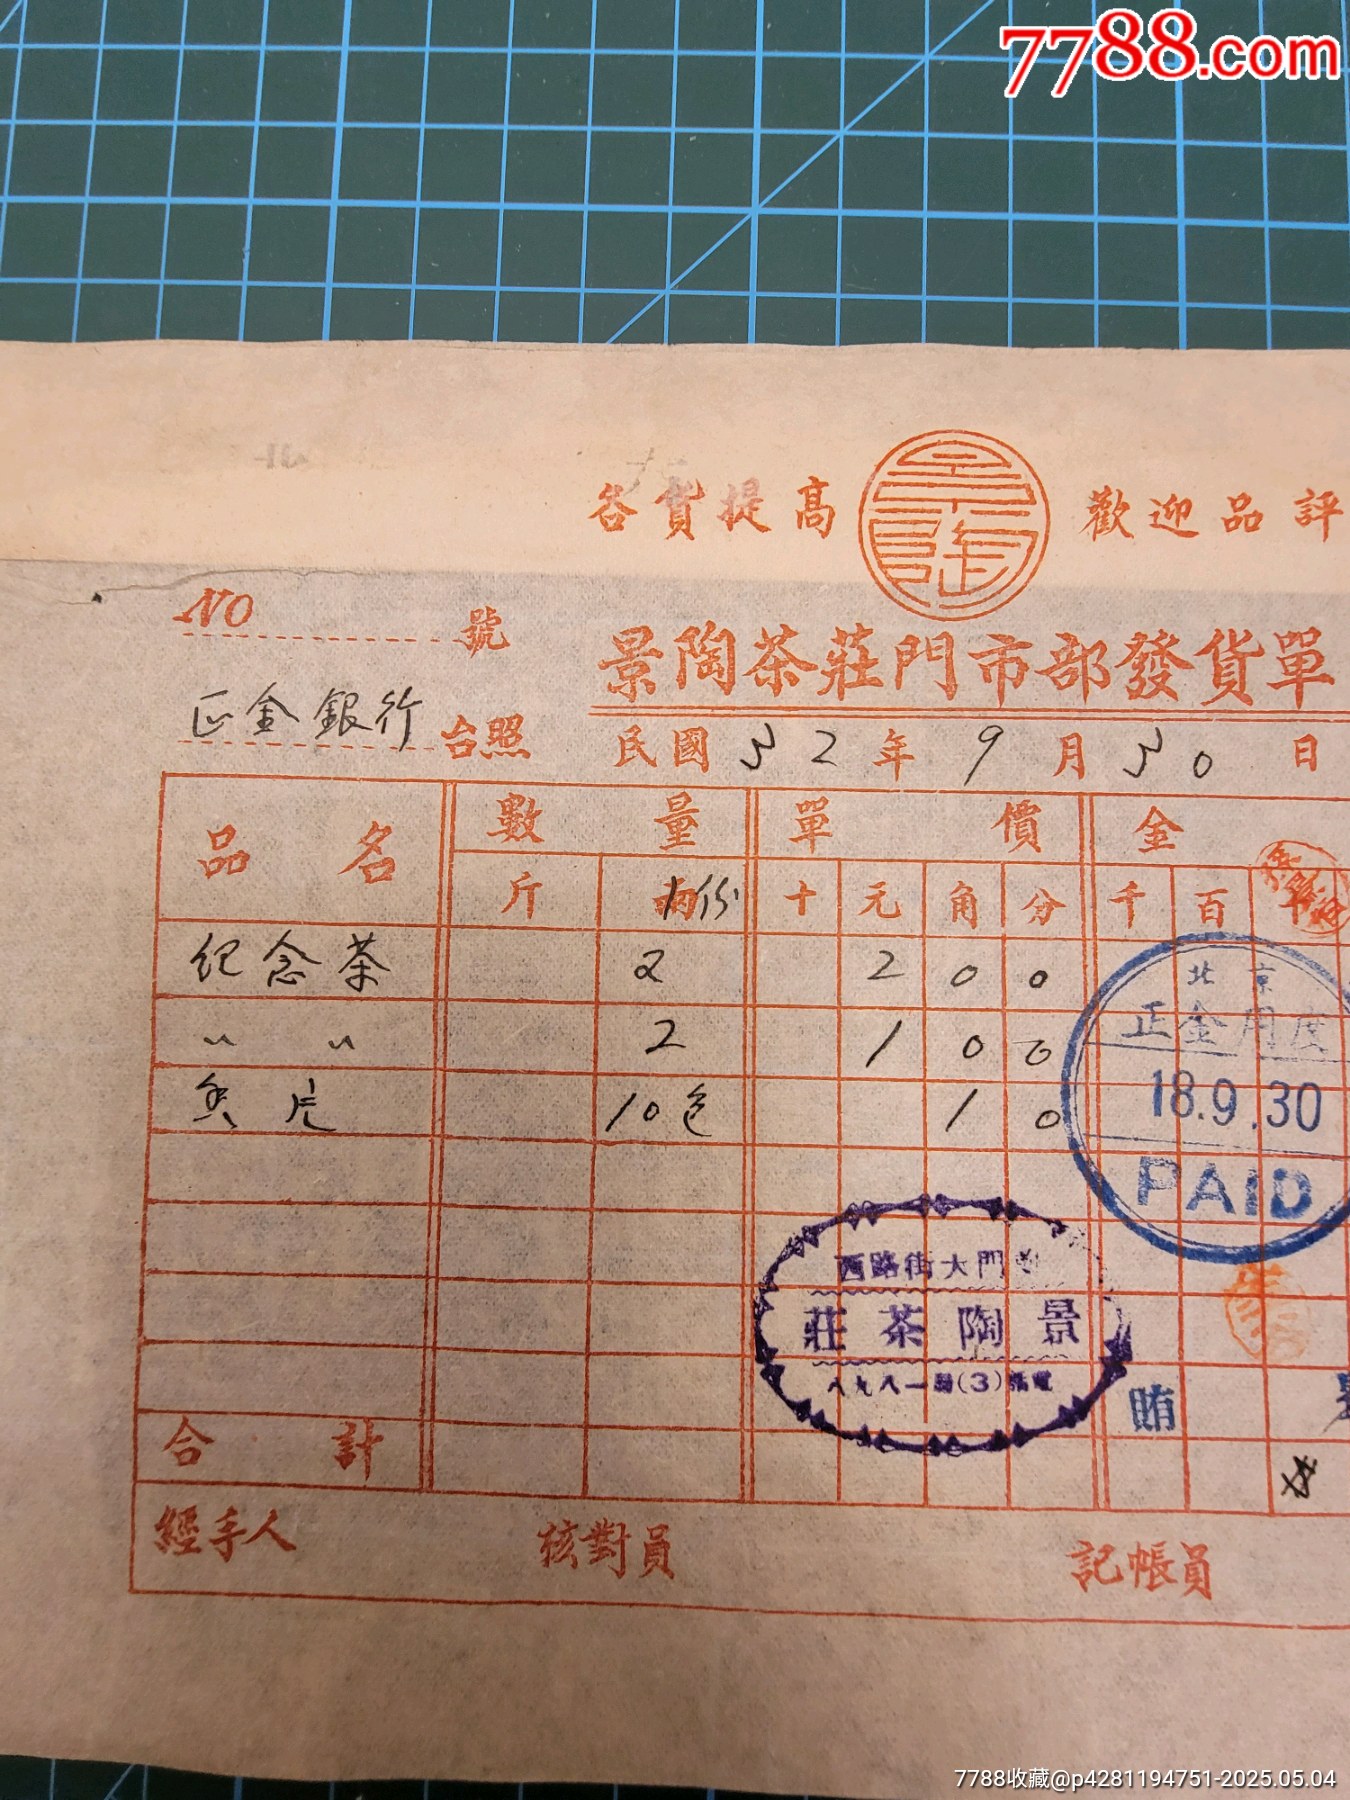 7788.com
各貨提高 景陶 歡迎品評
NO 號
景陶茶莊門市部發貨單
正金銀行 台照
民國 32 年 9 月 30 日
品名 數量 單價 金
斤 份 十 元 角 分 千 百
紀念茶 2 2 0 0
〃 〃 2 1 0 0
香片 10包 1 0
北京
正金用度
18.9.30
PAID
西路街大門
莊茶陶景
八九八一局(3)話電
合計
經手人 核對員 記帳員
7788收藏@p4281194751-2025.05.04